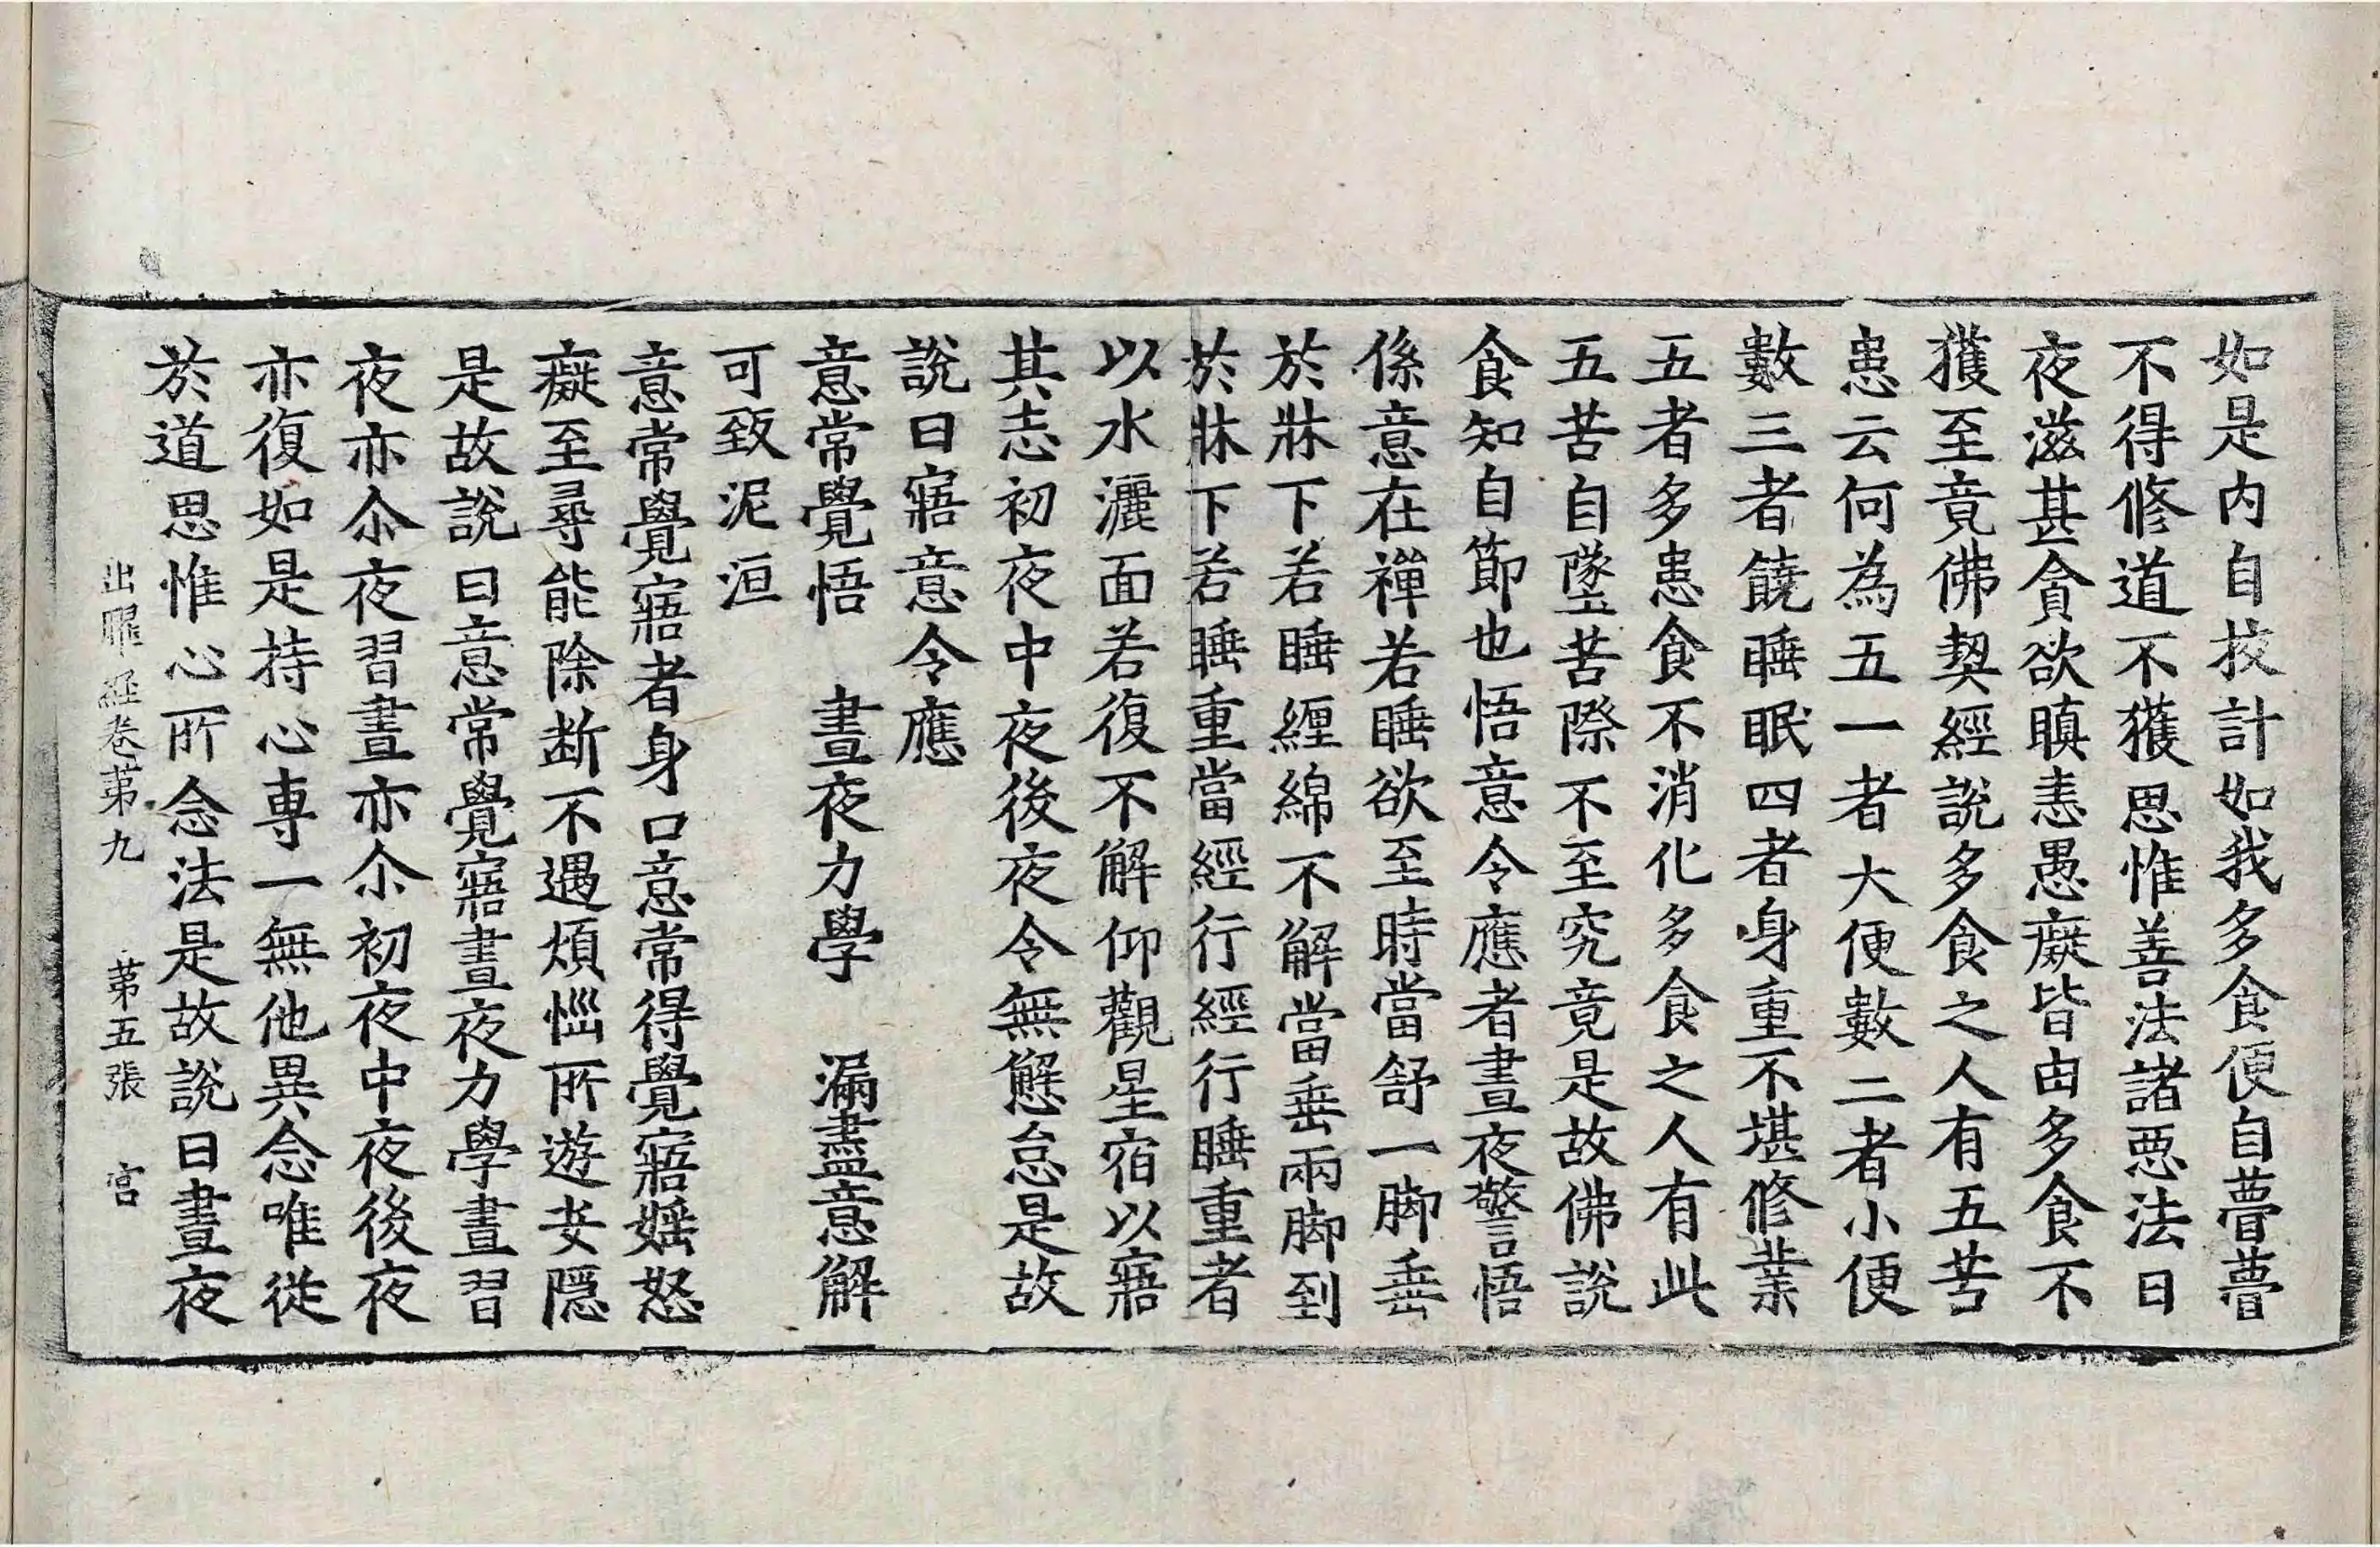 如是内自挍計如我多食便自瞢瞢
不得修道不獲思惟善法諸惡法日
夜滋甚貪欲瞋恚愚癡皆由多食不
獲至竟佛契經說多食之人有五苦
患云何為五一者大便數二者小便
數三者饒睡眠四者身重不堪修業
五者多患食不消化多食之人有此
五苦自墜苦際不至究竟是故佛說
食知自節也悟意令應者晝夜警悟
係意在禪若睡欲至時當舒一脚垂
於牀下若睡纏綿不解當垂兩脚到
於牀下若睡重當經行經行睡重者
以水灑面若復不解仰觀星宿以寤
其志初夜中夜後夜令無懈怠是故
說曰寤意令應
意常覺悟　晝夜力學　漏盡意解
可致泥洹
意常覺寤者身口意常得覺寤婬怒
癡至尋能除断不遇煩惱所遊安隱
是故說曰意常覺寤晝夜力學晝習
夜亦尒夜習晝亦尒初夜中夜後夜
亦復如是持心專一無他異念唯從
於道思惟心所念法是故說曰晝夜
出曜經卷第九　第五張　宮